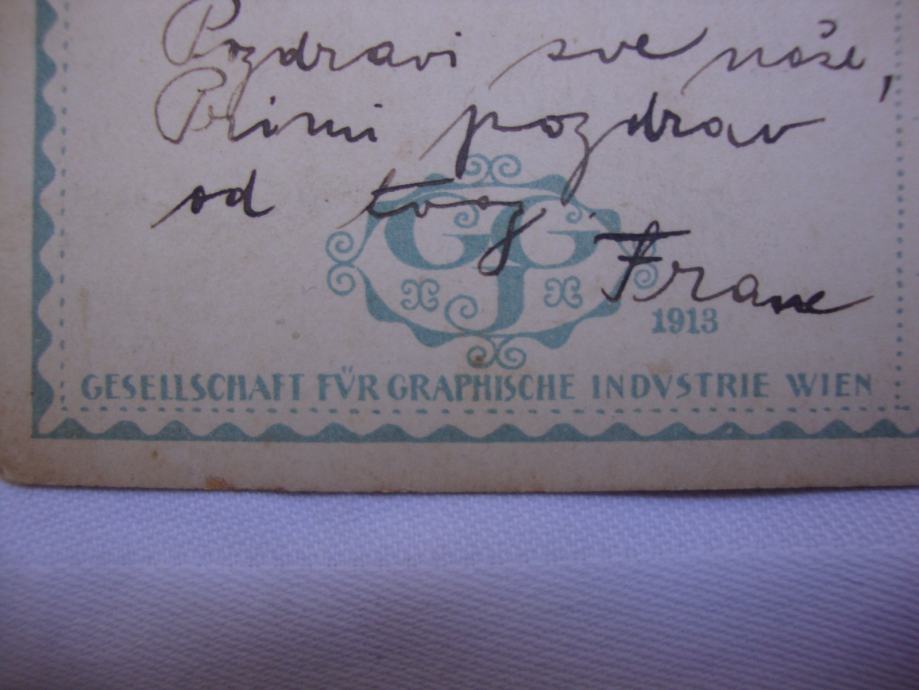 Pozdravi sve naše,
Primi pozdrav
od tvog
Frane
GGJ
1913
GESELLSCHAFT FÜR GRAPHISCHE INDVSTRIE WIEN